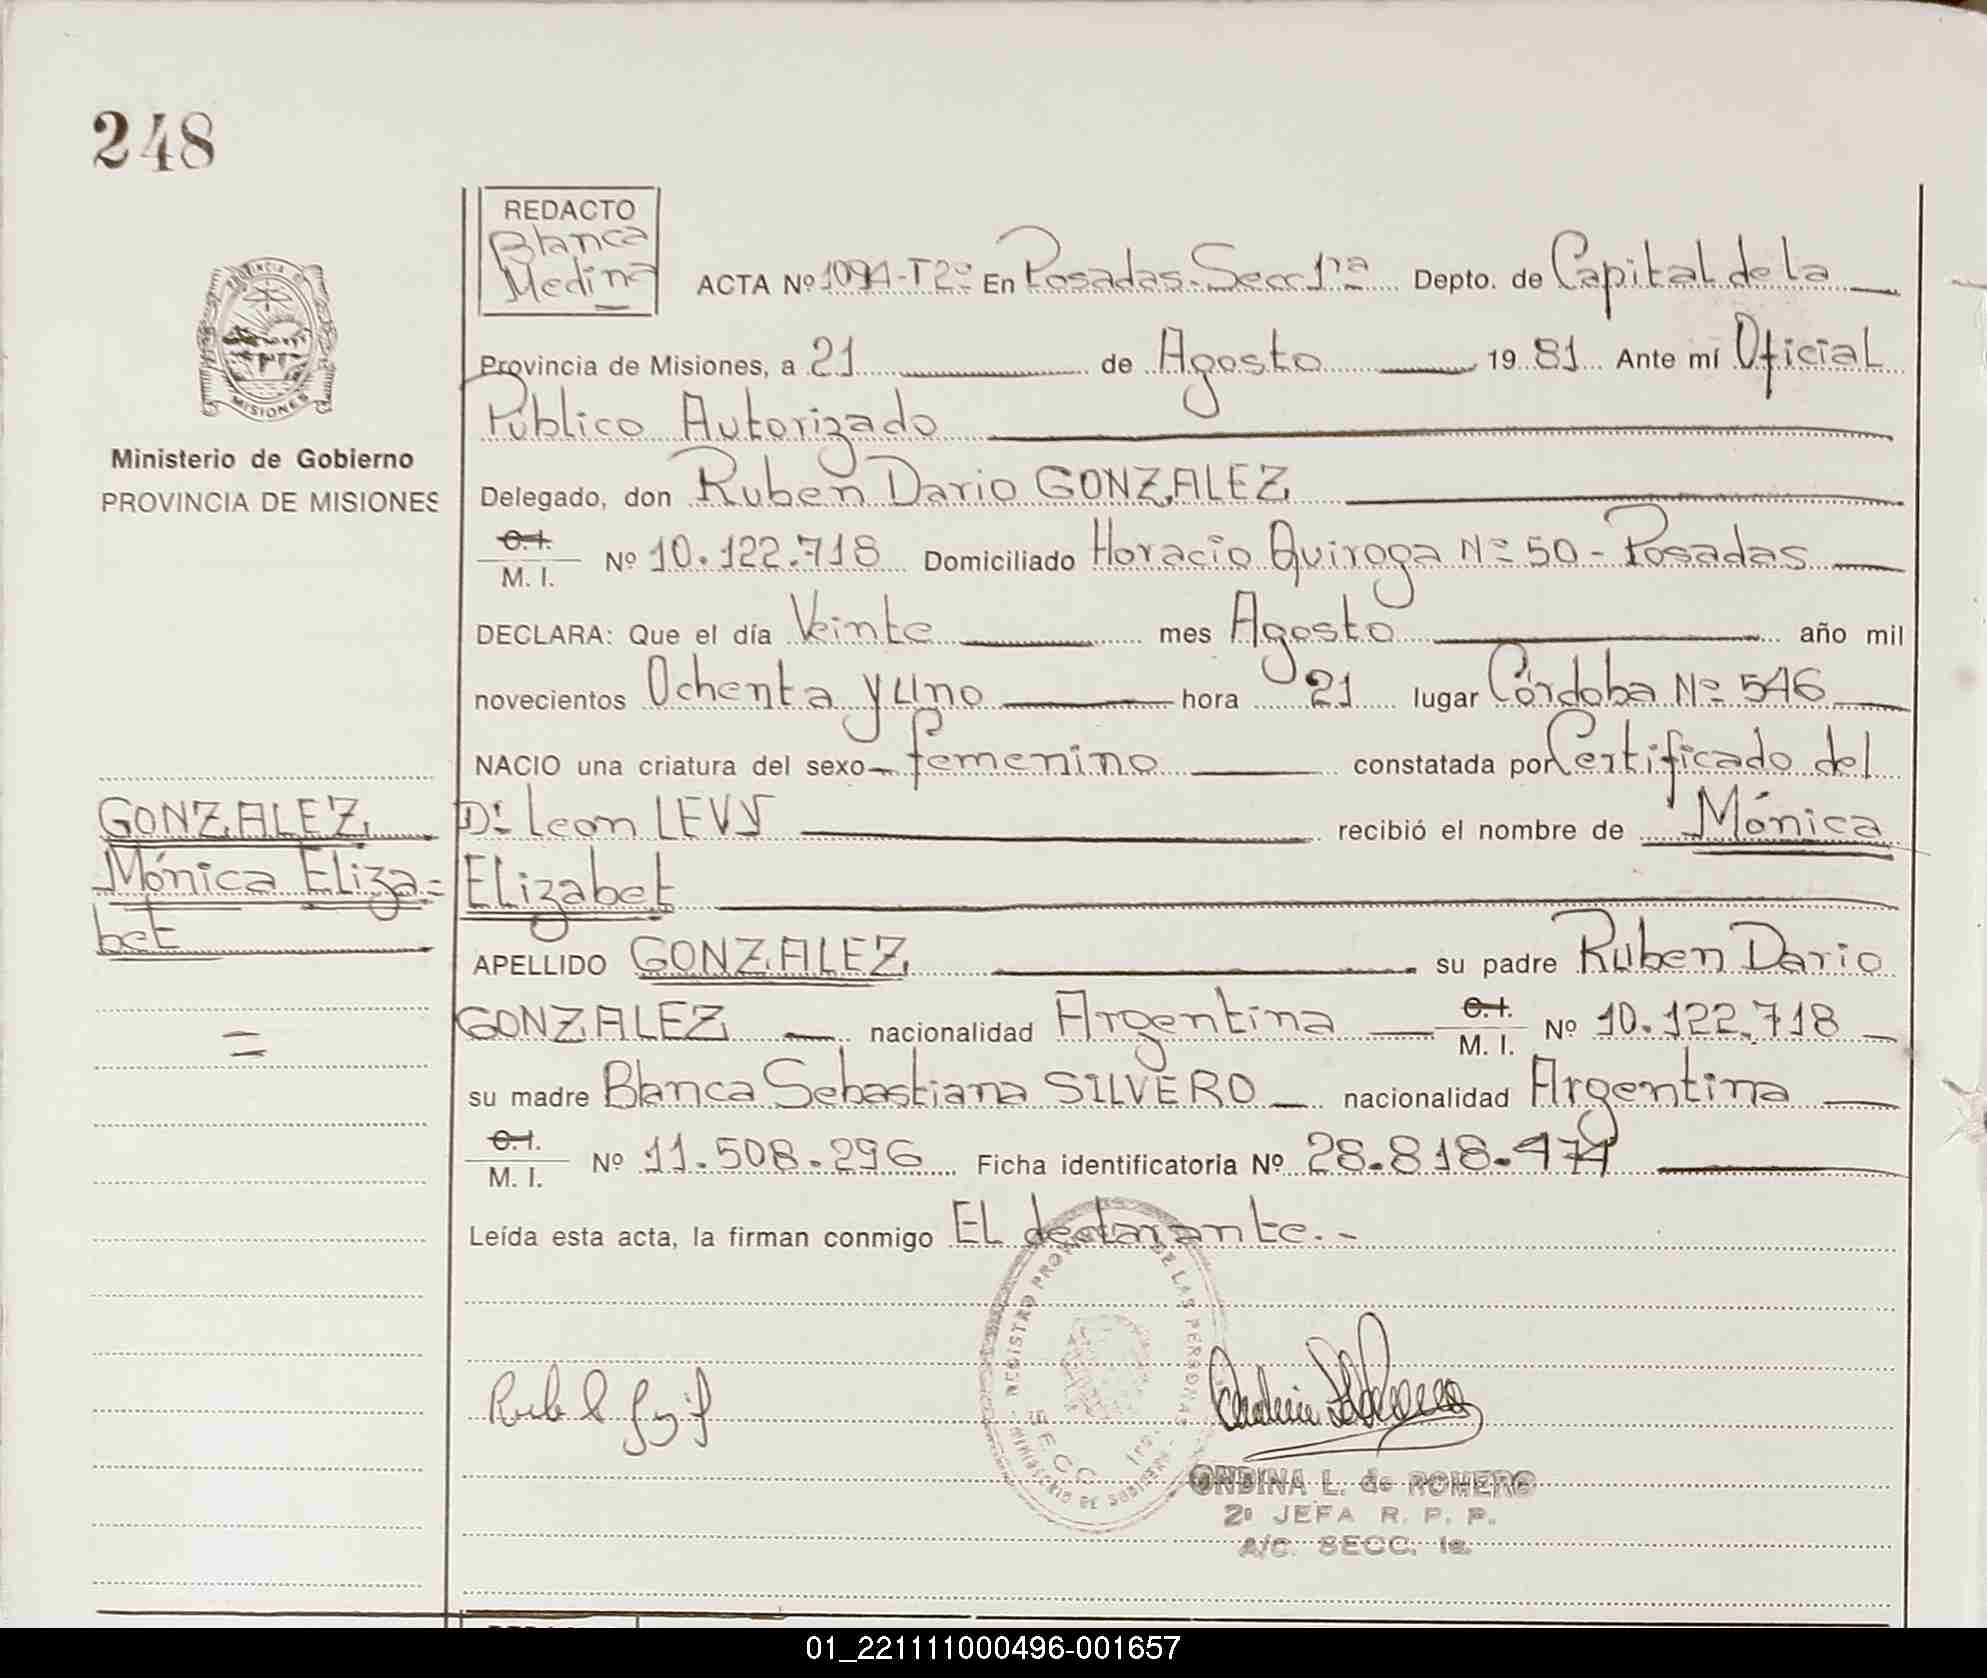 248
REDACTO
Blanca
Medina
ACTA Nº 1094-T2º En Posadas-Secc 1ra Depto. de Capital de la
Provincia de Misiones, a 21 de Agosto 1981 Ante mí Oficial
Público Autorizado
Ministerio de Gobierno
PROVINCIA DE MISIONES
MISIONES
Delegado, don Ruben Dario GONZALEZ
C.I.
M. I. Nº 10.122.718 Domiciliado Horacio Quiroga Nº 50 - Posadas
DECLARA: Que el día Veinte mes Agosto año mil
novecientos Ochenta y uno hora 21 lugar Córdoba Nº 546
NACIO una criatura del sexo femenino constatada por Certificado del
Dr Leon LEVY recibió el nombre de Mónica
Elizabet
GONZALEZ
Mónica Eliza=
bet
=
APELLIDO GONZALEZ su padre Ruben Dario
GONZALEZ nacionalidad Argentina C.I. M. I. Nº 10.122.718
su madre Blanca Sebastiana SILVERO nacionalidad Argentina
C.I.
M. I. Nº 11.508.296 Ficha identificatoria Nº 28.818.474
Leída esta acta, la firman conmigo El declarante.-
DE LAS PERSONAS
SECC 1ra.
ONDINA L. de ROMERO
2º JEFA R. P. P.
A/C. SECC. 1a.
01_221111000496-001657